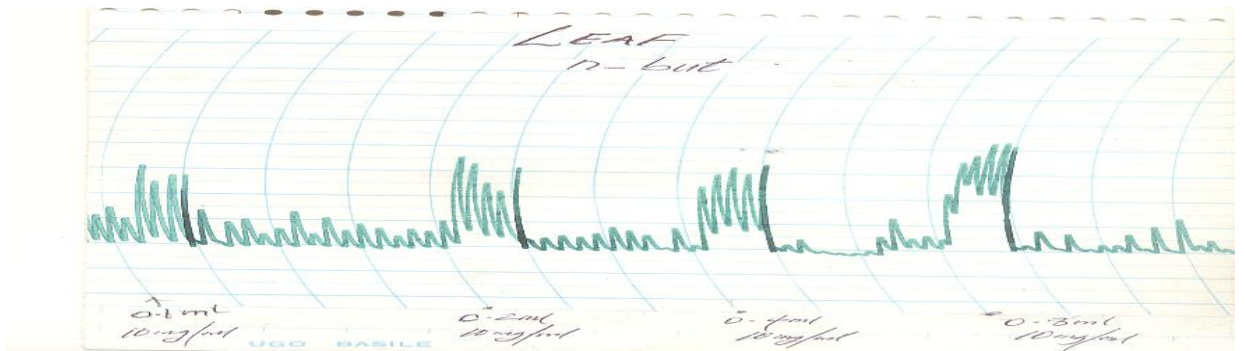 LEAF
n-but
0.1ml
10mg/ml
0.2ml
10mg/ml
0.4ml
10mg/ml
0.8ml
10mg/ml
UGO BASILE